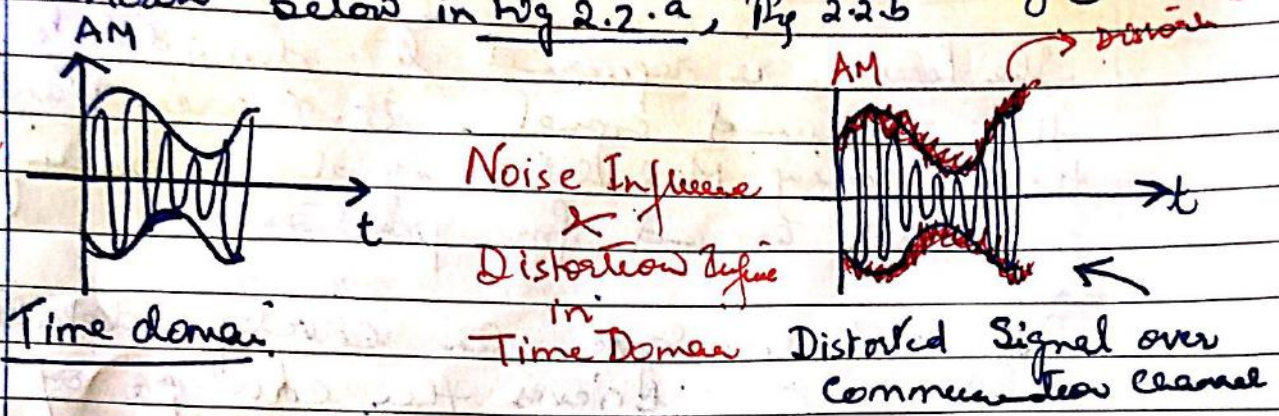 below in Fig 2.2.a, Fig 2.2.b
AM
t
Time domai
Noise Influene
&
Distortion define
in
Time Domae
Distort
AM
t
Distorted Signal over
Communication Channel